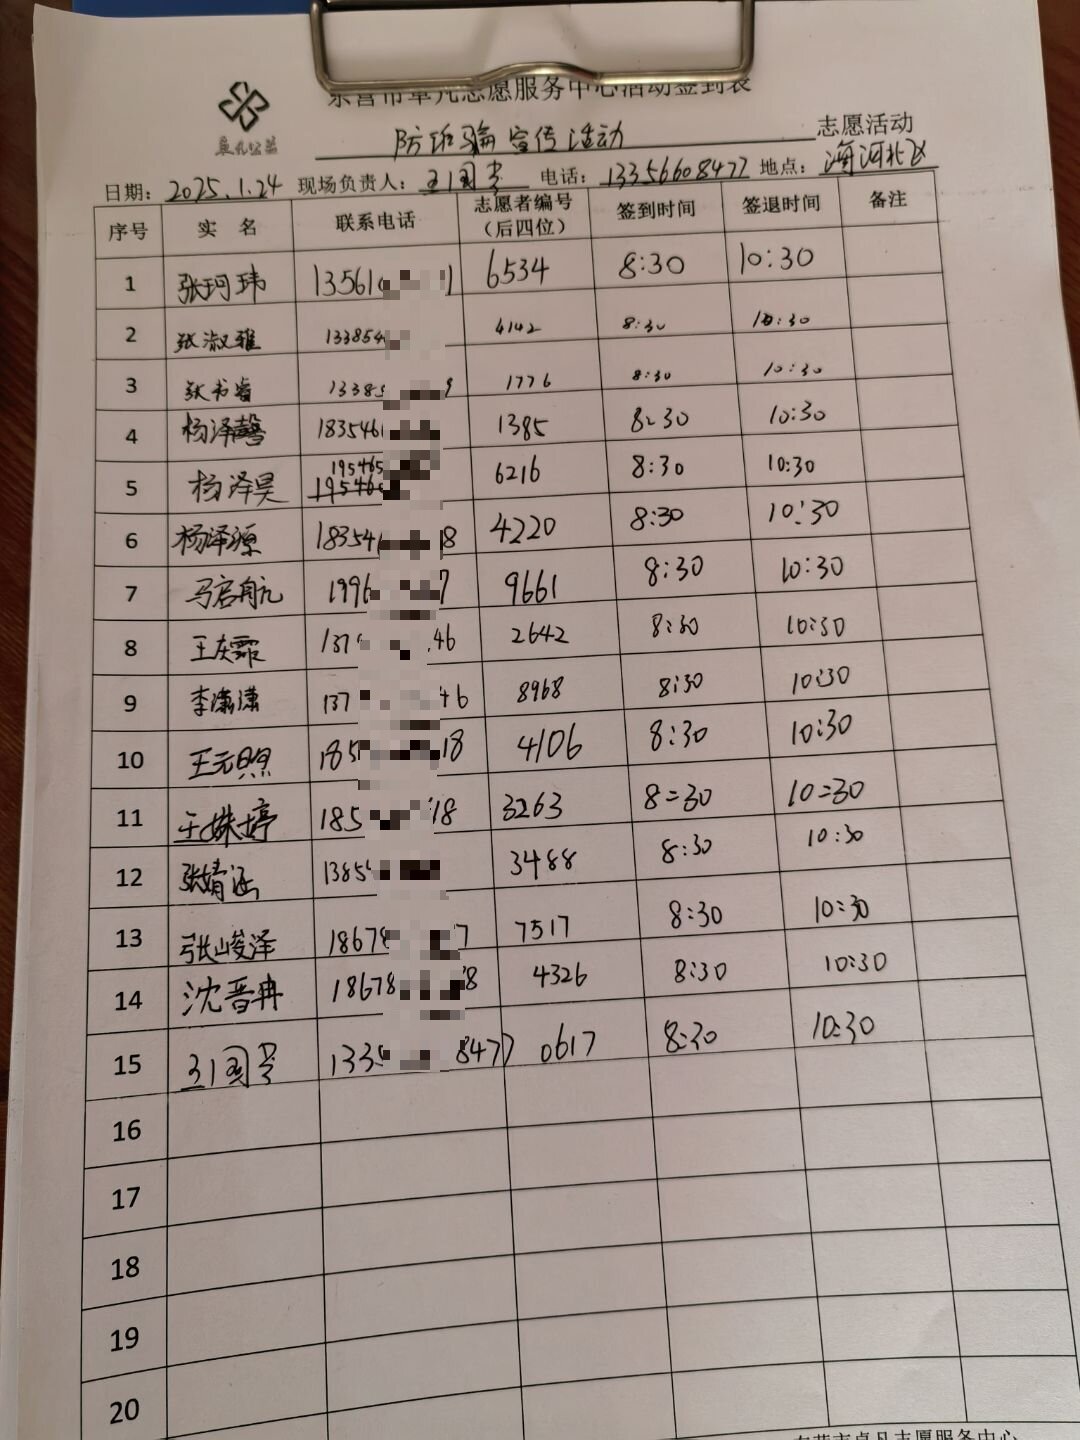 东营市卓凡志愿服务中心活动签到表
卓凡公益
防诈骗宣传活动 志愿活动
日期：2025.1.24 现场负责人： 电话：13356608477 地点：海河北区
序号 实 名 联系电话 志愿者编号（后四位） 签到时间 签退时间 备注
1 张珂玮 13561 1 6534 8:30 10:30
2 张淑雅 133854 4142 8:30 10:30
3 张书睿 13385 9 1776 8:30 10:30
4 杨泽馨 1835461 1385 8:30 10:30
195465
5 杨泽昊 195466 6216 8:30 10:30
6 杨泽源 18354 8 4220 8:30 10:30
7 马启航 1996 7 9661 8:30 10:30
8 王庆霏 137 46 2642 8:30 10:30
9 李潇潇 137 46 8968 8:30 10:30
10 王元照 185 18 4106 8:30 10:30
11 王姝婷 185 18 3263 8=30 10=30
12 张婧涵 1385 3488 8:30 10:30
13 张峻泽 18678 7 7517 8:30 10:30
14 沈晋冉 18678 8 4326 8:30 10:30
15 133 8477 0617 8:30 10:30
16
17
18
19
20
东营市卓凡志愿服务中心